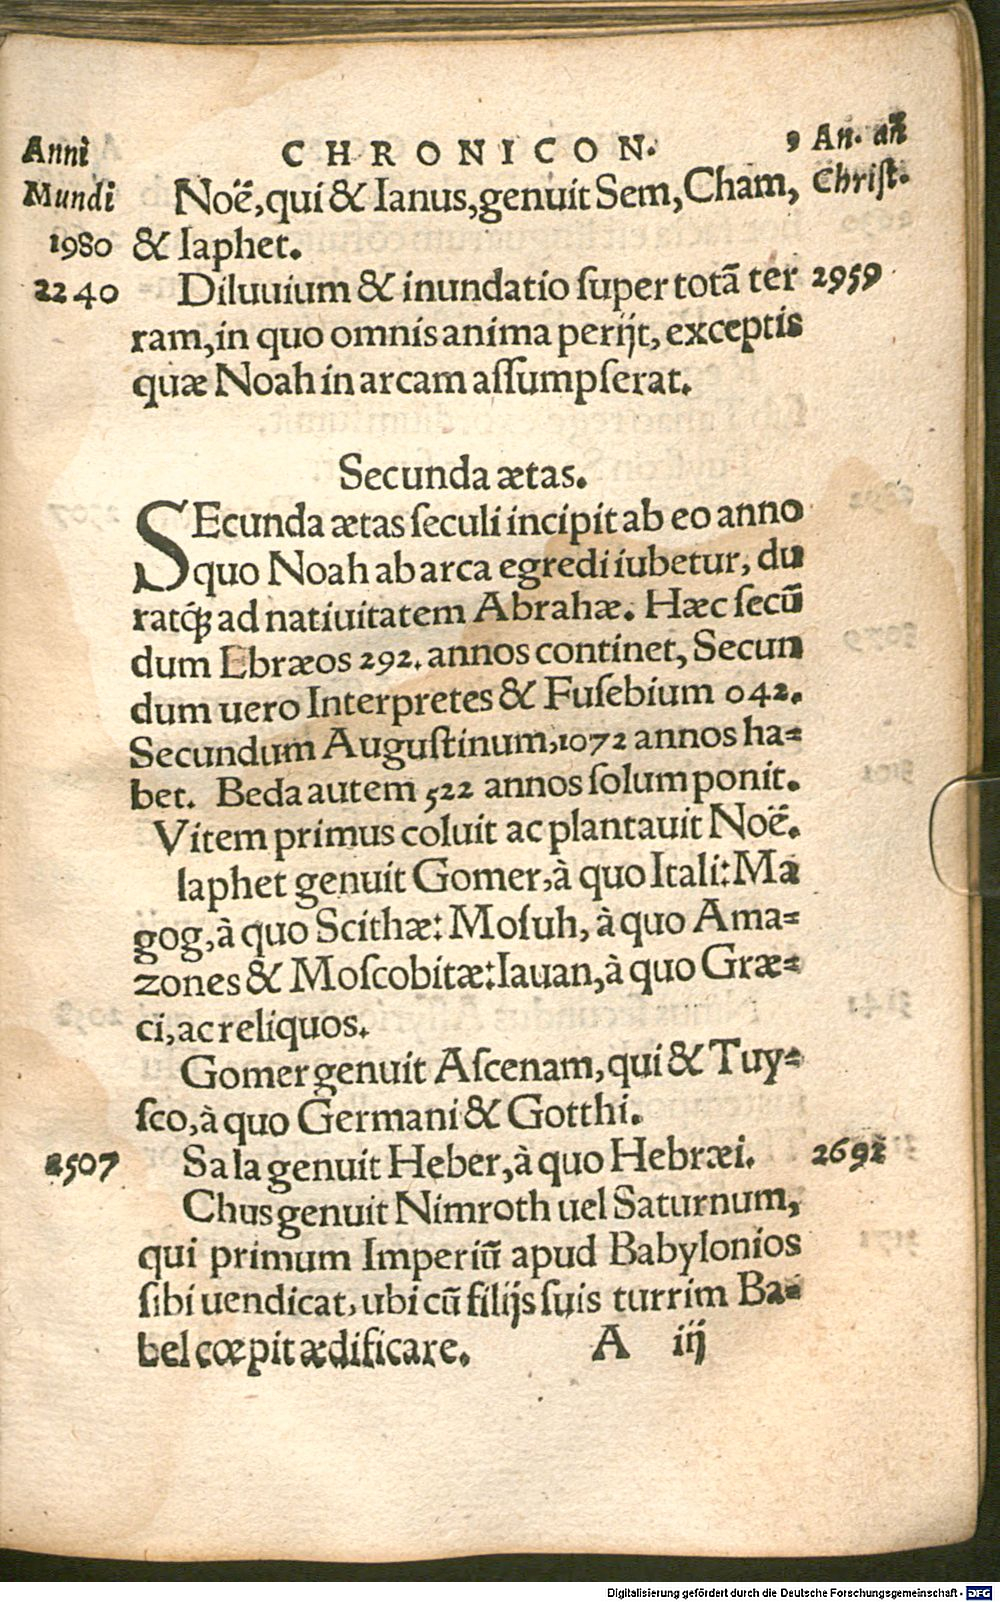 Anni CHRONICON. 9 An. añ
Mundi Noë, qui & Ianus, genuit Sem, Cham, Christ.
1980 & Iaphet.
2240 Diluuium & inundatio super totã ter 2959
ram, in quo omnis anima perijt, exceptis
quæ Noah in arcam assumpserat.
Secunda ætas.
SEcunda ætas seculi incipit ab eo anno
quo Noah ab arca egredi iubetur, du
ratq́ꝫ ad natiuitatem Abrahæ. Hæc secũ
dum Ebræos 292. annos continet, Secun
dum uero Interpretes & Fusebium 042.
Secundum Augustinum, 1072 annos ha=
bet. Beda autem 522 annos solum ponit.
Vitem primus coluit ac plantauit Noë.
Iaphet genuit Gomer, à quo Itali: Ma
gog, à quo Scithæ: Mosuh, à quo Ama=
zones & Moscobitæ: Iauan, à quo Græ=
ci, ac reliquos.
Gomer genuit Ascenam, qui & Tuy=
sco, à quo Germani & Gotthi.
2507 Sala genuit Heber, à quo Hebræi. 2692
Chus genuit Nimroth uel Saturnum,
qui primum Imperiũ apud Babylonios
sibi uendicat, ubi cũ filijs suis turrim Ba=
bel cœpit ædificare. A iij
Digitalisierung gefördert durch die Deutsche Forschungsgemeinschaft - DFG